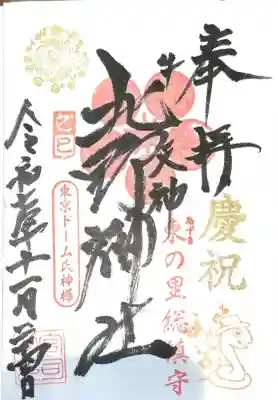 奉拝
慶祝
あずま
東の里総鎮守
牛天神
北野神社
乙巳
東京ドーム氏神様
令和七年十一月